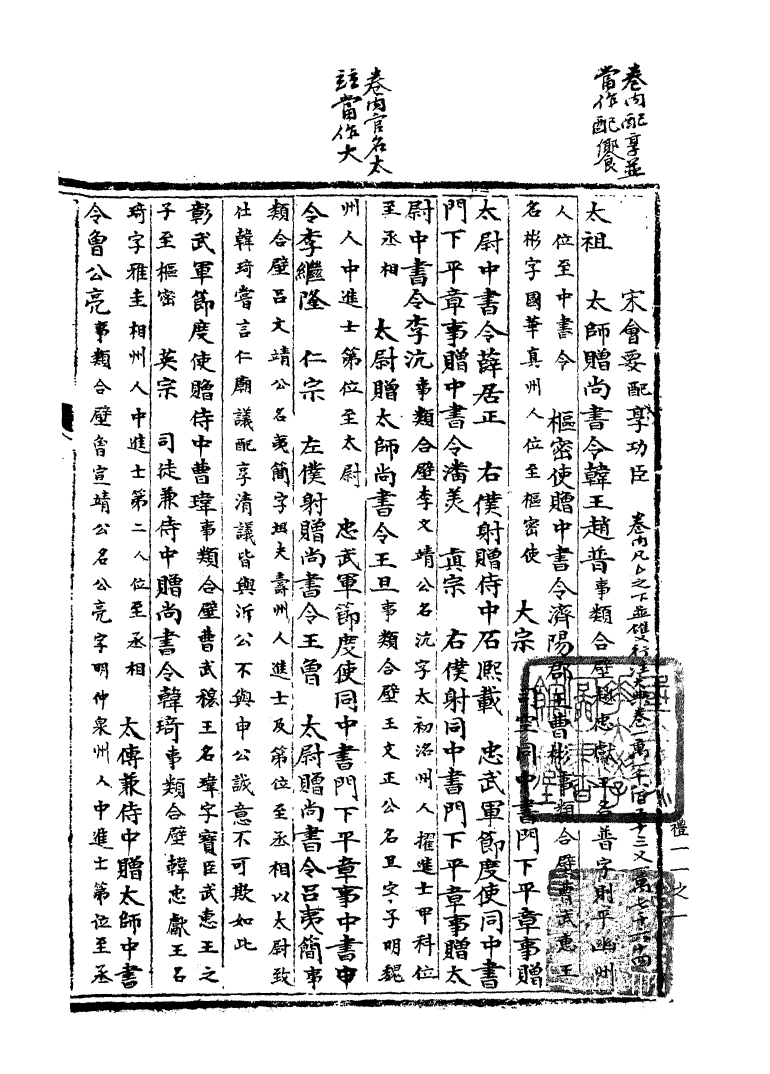 卷内配享並
當作配饗
卷内官名太
註當作大
宋會要配享功臣 卷内凡以之下並雙行注
太祖 太師贈尚書令韓王趙普事類合壁趙忠獻 名普字則平幽州
人位至中書令 樞密使贈中書令濟陽郡王曹彬事類合壁曹武惠王
名彬字國華真州人位至樞密使 大宗 司空同中書門下平章事贈
太尉中書令薛居正 右僕射贈侍中石熙載 忠武軍節度使同中書
門下平章事贈中書令潘美 真宗 右僕射同中書門下平章事贈太
尉中書令李沆事類合壁李文靖公名沆字太初洺州人擢進士甲科位
至丞相 太尉贈太師尚書令王旦事類合壁王文正公名旦字子明魏
州人中進士第位至太尉 忠武軍節度使同中書門下平章事中書中
令李繼隆 仁宗 左僕射贈尚書令王曾 太尉贈尚書令呂夷簡事
類合壁呂文靖公名夷簡字坦夫壽州人進士及第位至丞相以太尉致
仕韓琦嘗言仁廟議配享清議皆與沂公不與申公誠意不可欺如此
彰武軍節度使贈侍中曹瑋事類合壁曹武穆王名瑋字寶臣武惠王之
子至樞密 英宗 司徒兼侍中贈尚書令韓琦事類合壁韓忠獻王名
琦字雅圭相州人中進士第二人位至丞相 太傅兼侍中贈太師中書
令曾公亮事類合壁曾宣靖公名公亮字明仲泉州人中進士第位至丞
禮一一之一